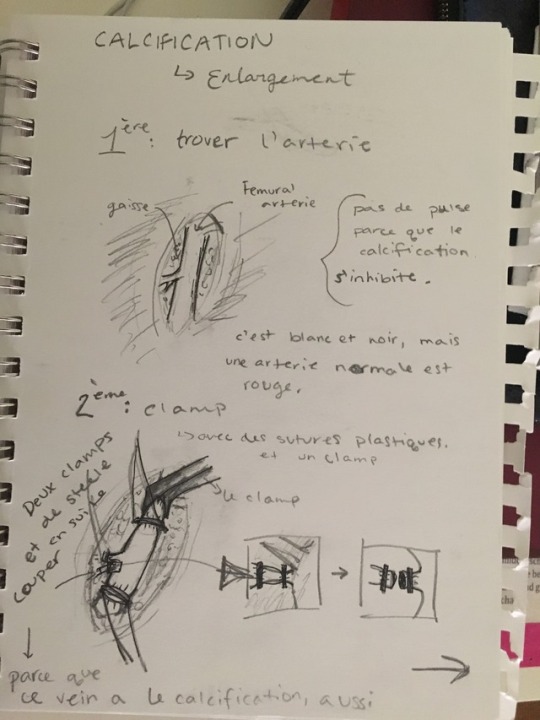 CALCIFICATION
↳ Enlargement
1ère: trover l'arterie
gaisse
Femural
arterie
pas de pulse
parce que le
calcification
s'inhibite.
c'est blanc et noir, mais
une arterie normale est
rouge.
2ème: clamp
↳ avec des sutures plastiques.
et un clamp
Deux clamps
et de steele
couper en suite
le clamp
parce que
ce vein a le calcification, aussi